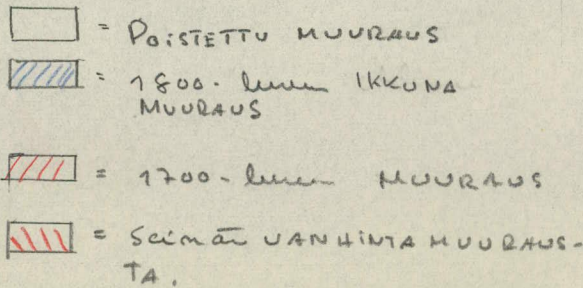 = POISTETTU MUURAUS
= 1800-luvun IKKUNA
MUURAUS
= 1700-luvun MUURAUS
= Seinän VANHINTA MUURAUS-
TA.